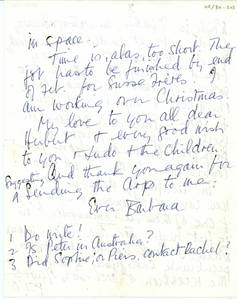 in space.
Time is, alas, too short. The
job has to be finished by end
of Oct. for Suisse Frères. I
am working over Christmas.
My love to you all dear
Herbert & every good wish
to you & Ludo & the children.
and thank you again for
sending the Arps to me.
Ever Barbara
1 Do write!
2 Is Peter in Australia?
3 Did Sophie, or Piers, contact Rachel?